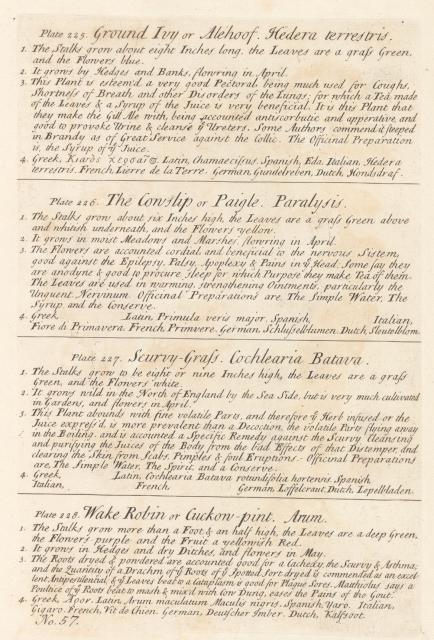 Plate 225. Ground Ivy or Alehoof. Hedera terrestris.
1. The Stalks grow about eight Inches long, the Leaves are a grass Green,
and the Flowers blue.
2. It grows by Hedges and Banks, flowring in April.
3. This Plant is esteem'd a very good Pectoral being much used for Coughs,
Shortness of Breath and other Disorders of the Lungs; for which a Tea made
of the Leaves & a Syrup of the Juice is very beneficial. It is this Plant that
they make the Gill Ale with being accounted antiscorbutic and apperative, and
good to provoke Urine & cleanse yͤ Ureters. Some Authors commend it steeped
in Brandy as of Great Service against the Collic. The Officinal Preparation
is, the Syrup of yͤ Juice.
4. Greek, Latin, Chamaecissus, Spanish, Eda. Italian, Hedera
terrestris. French, Lierre de la Terre. German, Gundelreben, Dutch, Hondsdraf.
Plate 226. The Cowslip or Paigle. Paralysis.
1. The Stalks grow about six Inches high, the Leaves are a grass Green above
and whitish underneath, and the Flowers yellow.
2. It grows in moist Meadows and Marshes, flowring in April.
3. The Flowers are accounted cordial and beneficial to the nervous Sistem,
good against the Epilepsy, Palsy, Apoplexy & Pains in yͤ Head, Some say they
are anodyne & good to procure Sleep for which Purpose they make Tea of them.
The Leaves are used in warming, strengthening Ointments, particularly the
Unguent. Nervinum Officinal Preparations are, The Simple Water, The
Syrup and the Conserve.
4. Greek, Latin, Primula veris major. Spanish, Italian,
Fiore di Primavera. French, Primvere. German, Schlusselblumen. Dutch, Sleutelblom.
Plate 227. Scurvy-Grass. Cochlearia Batava.
1. The Stalks grow to be eight or nine Inches high, the Leaves are a grass
Green, and the Flowers white.
2. It grows wild in the North of England by the Sea Side, but is very much cultivated
in Gardens, and flowers in April.
3. This Plant abounds with fine volatile Parts, and therefore yͤ Herb infused or the
Juice express'd, is more prevalent than a Decoction, the volatile Parts flying away
in the Boiling, and is accounted a Specific Remedy against the Scurvy, Cleansing
and purifying the Juices of the Body from the bad Effects of that Distemper, and
clearing the Skin from Scabs, Pimples & foul Eruptions. Officinal Preparations
are, The Simple Water, The Spirit, and a Conserve.
4. Greek, Latin, Cochlearia Batava rotundifolia hortensis. Spanish,
Italian, French, German, Loffelcraut. Dutch, Lepelbladen.
Plate 228. Wake Robin or Cuckow-pint. Arum.
1. The Stalks grow more than a Foot & an half high, the Leaves are a deep Green,
the Flowers purple and the Fruit a yellowish Red.
2. It grows in Hedges and dry Ditches, and flowers in May.
3. The Roots dryed & powdered are accounted good for a Cachexy, the Scurvy & Asthma;
and the Quantity of a Drachm of yͤ Roots of yͤ Spotted Sort dryed is commended as an excel-
lent Antipestilential, & yͤ Leaves beat to a Cataplasm is good for Plague Sores. Matthiolus says a
Poultice of yͤ Roots beat to mash & mix'd with Cow Dung, eases the Pains of the Gout.
4. Greek, Latin, Arum maculatum Maculis nigris. Spanish, Yaro. Italian,
Gigaro. French, Vit de Chien. German, Deutscher Imber. Dutch, Kalfsoot.
No. 57.